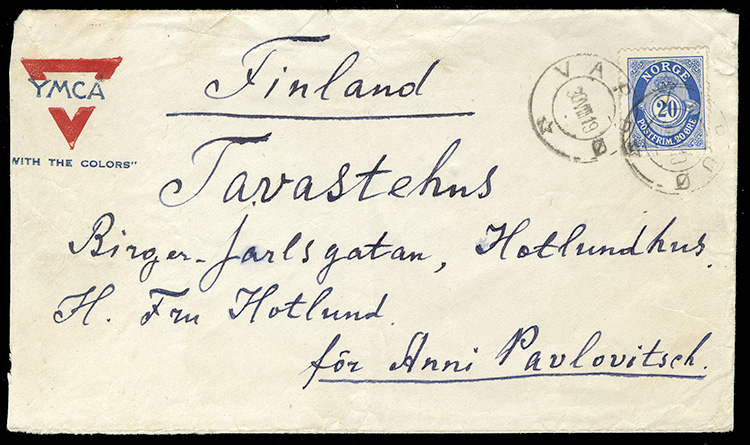 YMCA
WITH THE COLORS"
Finland
Tavastehus
Birger-Jarlsgatan, Hotlundhus.
H. Fru Hotlund.
för Anni Pavlovitsch.
NORGE
20
POSTFRIM. 20 ØRE
VARDØ